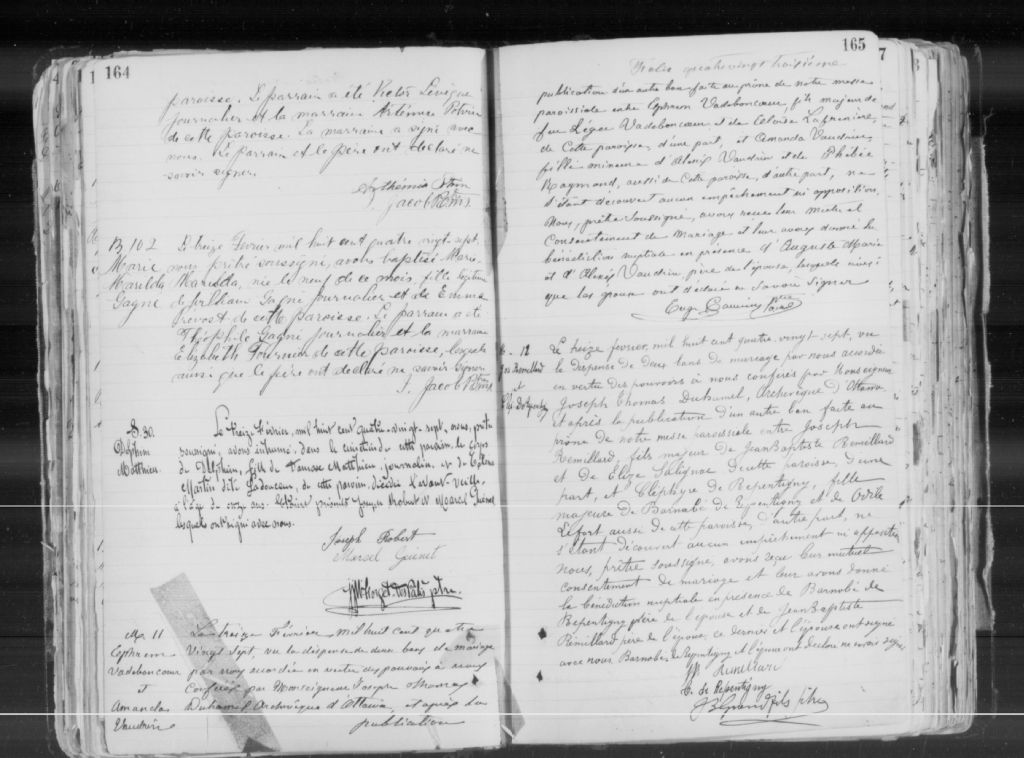 164
paroisse. Le parrain a été Victor Lévêque
journalier et la marraine Artémise Potvin
de cette paroisse. La marraine a signé avec
nous. Le parrain et le père ont déclaré ne
savoir signer.
J. Jacob Ptre
B 102 Le treize Fevrier mil huit cent quatre vingt sept,
Marie nous prêtre soussigné, avons baptisé Marie
Marilda Marilda, née le neuf de ce mois, fille légitime
Gagné de William Gagné journalier et de Emma
Provost de cette paroisse. Le parrain a été
Théophile Gagné journalier et la marraine
Elizabeth Fournier de cette paroisse, lesquels
ainsi que le père ont déclaré ne savoir signer
J. Jacob Ptre
S. 30. Le treize Février, mil huit cent quatre-vingt-sept, nous, prêtre
soussigné, avons inhumé, dans le cimetière de cette paroisse, le corps
Matthieu. de Delphim, fils de Matthieu, journalier, et de
Martin dit Ladouceur, de cette paroisse, décédé l'avant-veille
à l'age de ans. Etaient présents Joseph Robert et Marcel Guinet
lesquels ont signé avec nous.
Joseph Robert
Marcel Guinet
ptre.
M. 11 Le treize Février mil huit cent quatre
Ephrem vingt sept, vu la dispense de deux bans de mariage
Vadeboncœur par nous accordée en vertu des pouvoirs à nous
et conférés par Monseigneur Joseph Thomas
Amanda Duhamel Archevêque d'Ottawa, et après la
Vaudrin publication
165
Folio quatre vingt troisième
publication d'un autre ban faite au prône de notre messe
paroissiale entre Ephrem Vadeboncœur, fils majeur de
feu Léger Vadeboncœur et de Céloïse Lafrenière,
de cette paroisse, d'une part, et Amanda Vaudrin,
fille mineure d'Alexis Vaudrin et de Phébée
Raymond, aussi de cette paroisse, d'autre part, ne
s'étant découvert aucun empêchement ni opposition,
Nous, prêtre soussigné, avons reçu leur mutuel
Consentement de Mariage et leur avons donné la
bénédiction nuptiale en présence d'Auguste Marie
et d'Alexis Vaudrin, père de l'épouse, lesquels ainsi
que les époux ont déclaré ne savoir signer
M. 12 Le treize fevrier, mil huit cent quatre-vingt-sept, vu
Jos Remillard la dispense de deux bans de mariage par nous accordée
et en vertu des pouvoirs à nous conférés par Monseigneur
Joseph Thomas Duhamel, Archevêque d'Ottawa
et après la publication d'un autre ban faite au
prône de notre messe paroissiale entre Joseph
Remillard, fils majeur de Jean Baptiste Remillard
et de Elize Salignac de cette paroisse, d'une
part, et Cléphyre de Repentigny, fille
majeure de Barnabé de Repentigny et de Odile
Léfort aussi de cette paroisse, d'autre part, ne
s'étant découvert aucun empêchement ni opposition
Nous, prêtre soussigné, avons reçu leur mutuel
consentement de mariage et leur avons donné
la bénédiction nuptiale en présence de Barnabé de
Repentigny père de l'épouse et de Jean Baptiste
Rémillard père de l'époux. Ce dernier et l'épouse ont signé
avec nous. Barnabé de Repentigny et l'époux ont déclaré ne savoir signer.
Remillard
C. de Repentigny